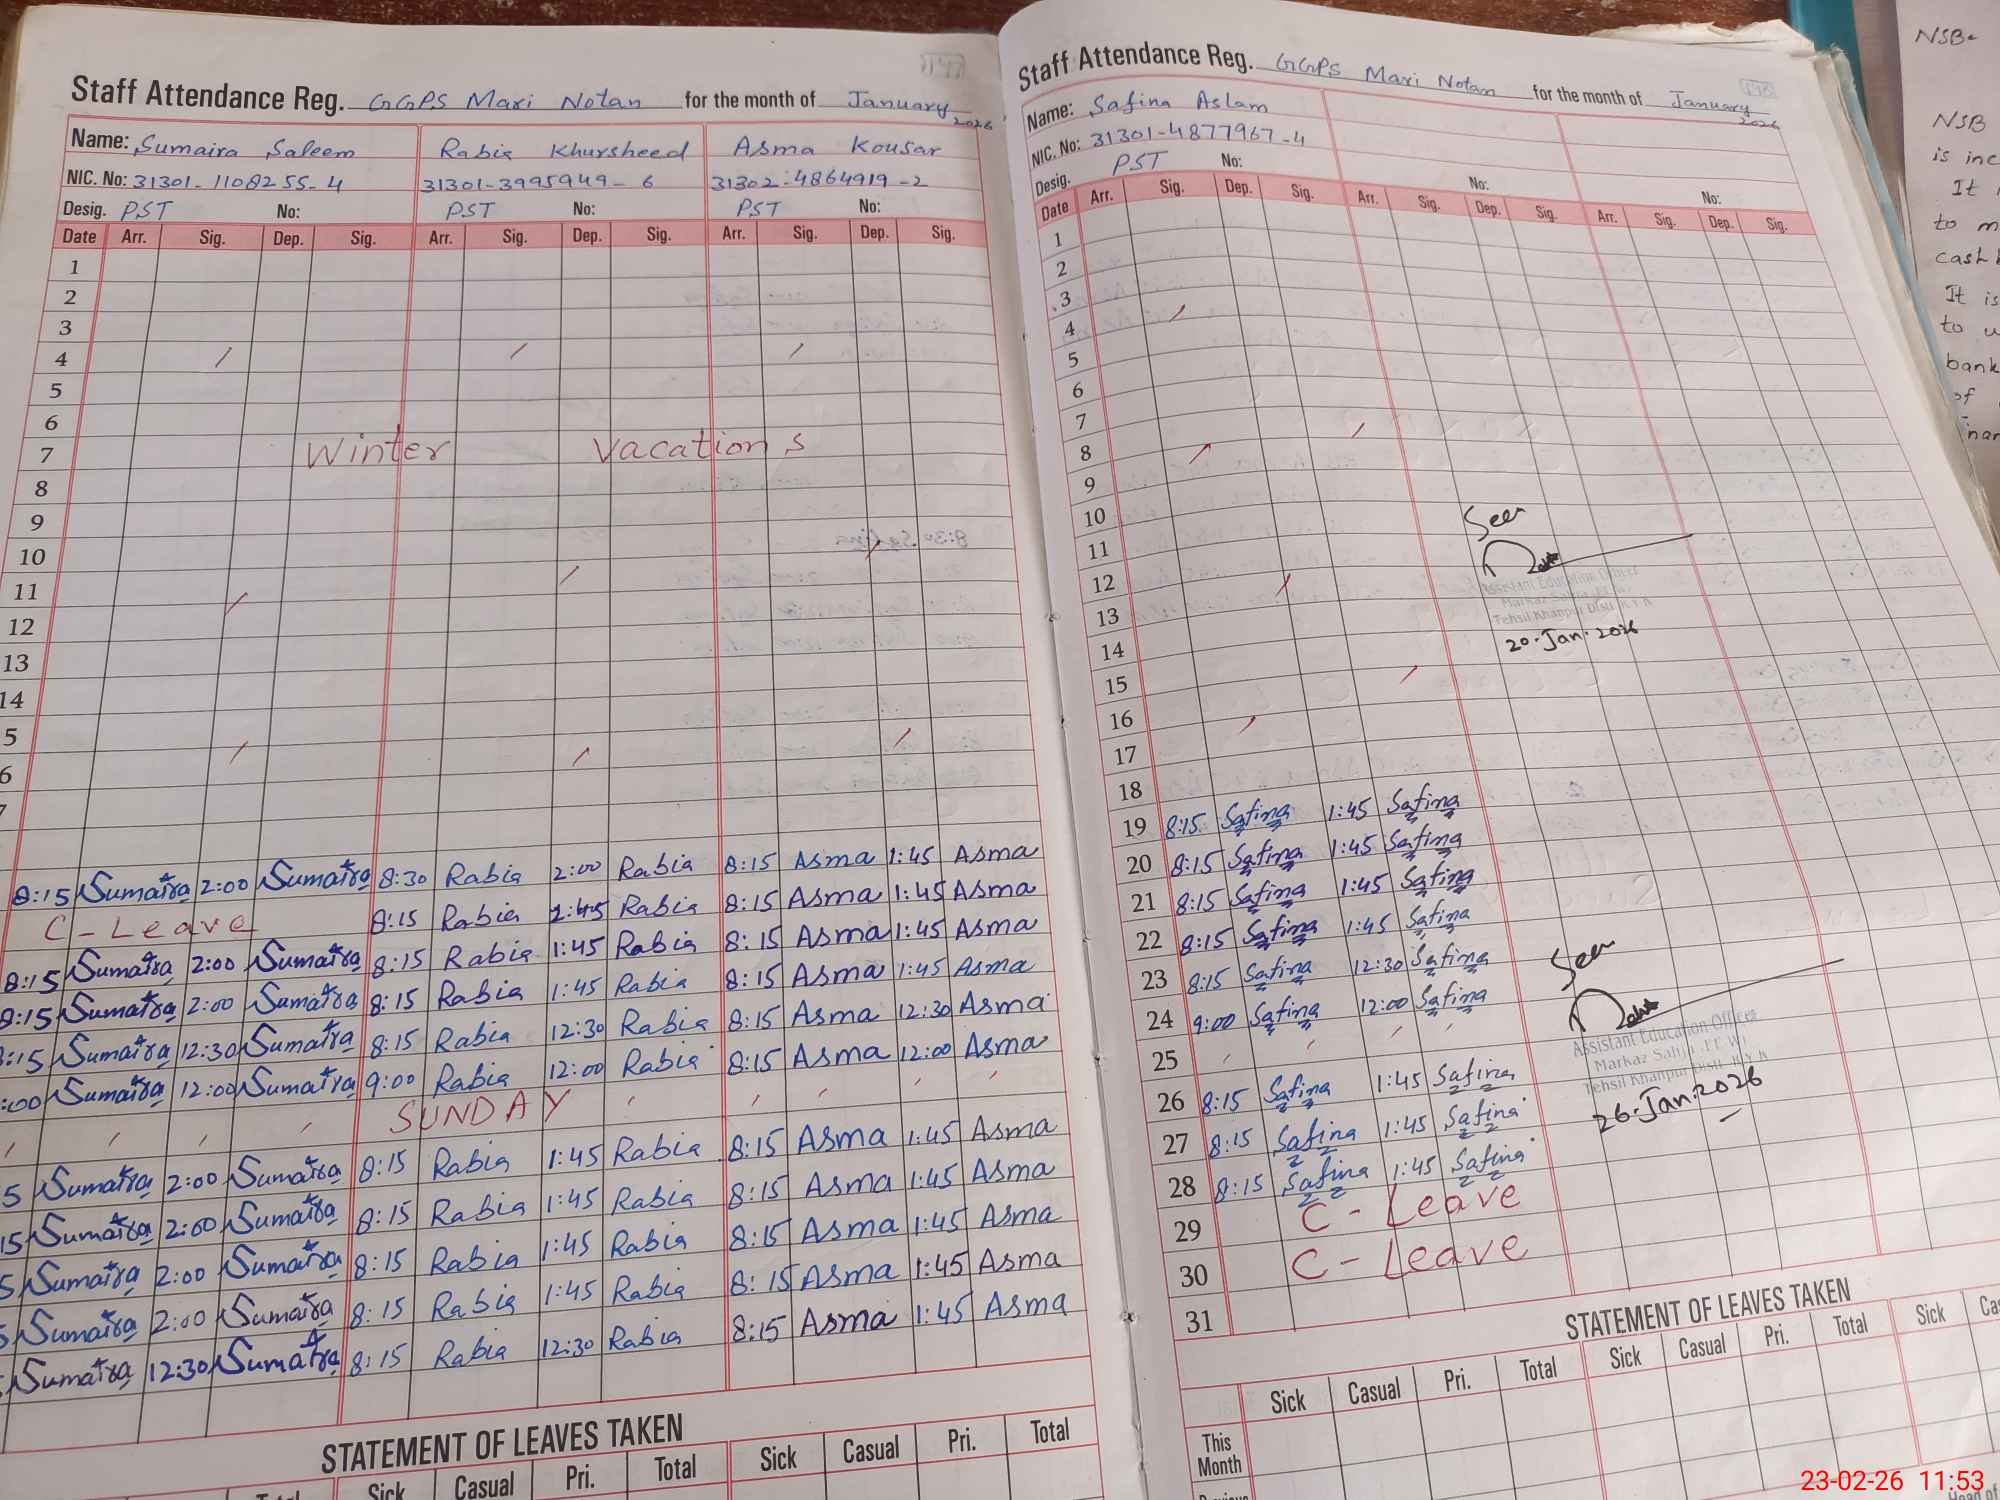 Staff Attendance Reg. GGPS Mari Notan for the month of January 2026
Name: Sumaira Saleem Rabia Khursheed Asma Kousar
NIC. No: 31301-1108255-4 31301-3995949-6 31302-4864919-2
Desig. PST No: PST No: PST No:
Date Arr. Sig. Dep. Sig. Arr. Sig. Dep. Sig. Arr. Sig. Dep. Sig.
1
2
3
4
5
6
7 Winter Vacations
8
9
10
11
12
13
14
5
6
7
8:15 Sumaira 2:00 Sumaira 8:30 Rabia 2:00 Rabia 8:15 Asma 1:45 Asma
C-Leave 8:15 Rabia 1:45 Rabia 8:15 Asma 1:45 Asma
8:15 Sumaira 2:00 Sumaira 8:15 Rabia 1:45 Rabia 8:15 Asma 1:45 Asma
8:15 Sumaira 2:00 Sumaira 8:15 Rabia 1:45 Rabia 8:15 Asma 1:45 Asma
:15 Sumaira 12:30 Sumaira 8:15 Rabia 12:30 Rabia 8:15 Asma 12:30 Asma
:00 Sumaira 12:00 Sumaira 9:00 Rabia 12:00 Rabia 8:15 Asma 12:00 Asma
SUNDAY
5 Sumaira 2:00 Sumaira 8:15 Rabia 1:45 Rabia 8:15 Asma 1:45 Asma
15 Sumaira 2:00 Sumaira 8:15 Rabia 1:45 Rabia 8:15 Asma 1:45 Asma
5 Sumaira 2:00 Sumaira 8:15 Rabia 1:45 Rabia 8:15 Asma 1:45 Asma
5 Sumaira 2:00 Sumaira 8:15 Rabia 1:45 Rabia 8:15 Asma 1:45 Asma
Sumaira 12:30 Sumaira 8:15 Rabia 12:30 Rabia 8:15 Asma 1:45 Asma
STATEMENT OF LEAVES TAKEN
Sick Casual Pri. Total Sick Casual Pri. Total
Staff Attendance Reg. GGPS Mari Notan for the month of January 2026
Name: Safina Aslam
NIC. No: 31301-4877967-4
Desig. PST No: No: No:
Date Arr. Sig. Dep. Sig. Arr. Sig. Dep. Sig. Arr. Sig. Dep. Sig.
1
2
3
4
5
6
7
8
9
10
11
12
13
14
15
16
17
18
Seen
Assistant Education Officer
Tehsil Khanpur Distt. R Y K
20.Jan.2026
19 8:15 Safina 1:45 Safina
20 8:15 Safina 1:45 Safina
21 8:15 Safina 1:45 Safina
22 8:15 Safina 1:45 Safina
23 8:15 Safina 12:30 Safina
24 9:00 Safina 12:00 Safina
25
26 8:15 Safina 1:45 Safina
27 8:15 Safina 1:45 Safina
28 8:15 Safina 1:45 Safina
29 C-Leave
30 C-Leave
31
Seen
Assistant Education Officer
Tehsil Khanpur Distt. R Y K
26.Jan.2026
STATEMENT OF LEAVES TAKEN
Sick Casual Pri. Total Sick Casual Pri. Total Sick Cas
This Month
NSB-
NSB
is inc
It
to m
cash
It is
to u
bank
of
23-02-26 11:53